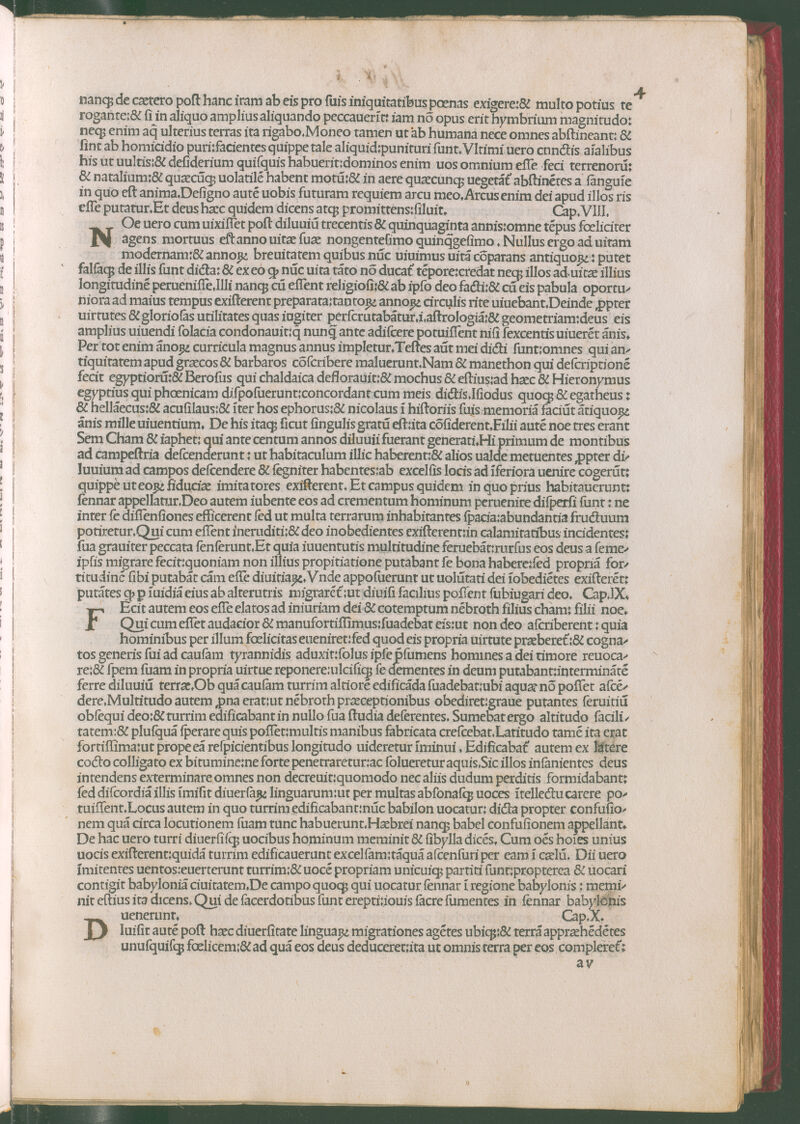 4
nanqꝫ de cætero poſt hanc iram ab eis pro ſuis iniquitatibus pœnas exigere:& multo potius te
rogante:& ſi in aliquo amplius aliquando peccauerit: iam nõ opus erit hymbrium magnitudo:
neqꝫ enim aq̃ ulterius terras ita rigabo.Moneo tamen ut ab humana nece omnes abſtineant: &
ſint ab homicidio puri:facientes quippe tale aliquid:punituri ſunt.Vltimi uero cunctis aĩalibus
his ut uultis:& deſiderium quiſquis habuerit:dominos enim uos omnium eſſe feci terrenorũ:
& natalium:& quæcũqꝫ uolatilẽ habent motũ:& in aere quæcunqꝫ uegetãt᷑ abſtinẽtes a ſanguĩe
in quo eſt anima.Deſigno autẽ uobis futuram requiem arcu meo.Arcus enim dei apud illos ris
eſſe putatur.Et deus hæc quidem dicens atqꝫ promittens:ſiluit. Cap.VIII.
NOe uero cum uixiſſet poſt diluuiũ trecentis & quinquaginta annis:omne tẽpus fœliciter
agens mortuus eſt anno uitæ ſuæ nongenteſimo quinq̃geſimo . Nullus ergo ad uitam
modernam:& annoꝝ breuitatem quibus nũc uiuimus uitã cõparans antiquoꝝ : putet
falſaqꝫ de illis ſunt dicta: & ex eo ꝙ nũc uita tãto nõ ducat᷑ tẽpore:credat neqꝫ illos ad uitæ illius
longitudinẽ perueniſſe.Illi nanqꝫ cũ eſſent religioſi:& ab ipſo deo facti:& cũ eis pabula oportu⸗
niora ad maius tempus exiſterent preparata:tantoꝝ annoꝝ circulis rite uiuebant.Deinde ꝓpter
uirtutes & glorioſas utilitates quas iugiter perſcrutabãtur.i.aſtrologiã:& geometriam:deus eis
amplius uiuendi ſolacia condonauit:q̃ nunq̃ ante adiſcere potuiſſent niſi ſexcentis uiuerẽt ãnis.
Per tot enim ãnoꝝ curricula magnus annus impletur.Teſtes aũt mei dicti ſunt:omnes qui an⸗
tiquitatem apud græcos & barbaros cõſcribere maluerunt.Nam & manethon qui deſcriptionẽ
fecit egyptiorũ:& Beroſus qui chaldaica deflorauit:& mochus & eſtius:ad hæc & Hieronymus
egyptius qui phœnicam diſpoſuerunt:concordant cum meis dictis.Iſiodus quoqꝫ & egatheus :
& hellãecus:& acuſilaus:& ĩter hos ephorus:& nicolaus ĩ hiſtoriis ſuis memoriã faciũt ãtiquoꝝ
ãnis mille uiuentium. De his itaqꝫ ſicut ſingulis gratũ eſt:ita cõſiderent.Filii autẽ noe tres erant
Sem Cham & iaphet: qui ante centum annos diluuii fuerant generati.Hi primum de montibus
ad campeſtria deſcenderunt : ut habitaculum illic haberent:& alios ualde metuentes ꝓpter di⸗
luuium ad campos deſcendere & ſegniter habentes:ab excelſis locis ad ĩferiora uenire cogerũt:
quippe ut eoꝝ fiduciæ imitatores exiſterent. Et campus quidem in quo prius habitauerunt:
ſennar appellatur.Deo autem iubente eos ad crementum hominum peruenire diſperſi ſunt : ne
inter ſe diſſenſiones efficerent ſed ut multa terrarum inhabitantes ſpacia:abundantia fructuum
potiretur.Qui cum eſſent ineruditi:& deo inobedientes exiſterent:in calamitatibus incidentes:
ſua grauiter peccata ſenſerunt.Et quia iuuentutis multitudine feruebãt:rurſus eos deus a ſeme⸗
ipſis migrare fecit:quoniam non illius propitiatione putabant ſe bona habere:ſed propriã for⸗
titudinẽ ſibi putabãt cãm eſſe diuitiaꝝ.Vnde appoſuerunt ut uolũtati dei ĩobediẽtes exiſterẽt:
putãtes ꝙ ꝑ ĩuidiã eius ab alterutris migrarẽt᷑:ut diuiſi facilius poſſent ſubiugari deo. Cap.IX.
FEcit autem eos eſſe elatos ad iniuriam dei & cotemptum nẽbroth filius cham: filii noe.
Qui cum eſſet audacior & manufortiſſimus:ſuadebat eis:ut non deo aſcriberent : quia
hominibus per illum fœlicitas eueniret:ſed quod eis propria uirtute præberet᷑:& cogna⸗
tos generis ſui ad cauſam tyrannidis aduxit:ſolus ipſe p̃ſumens homines a dei timore reuoca⸗
re:& ſpem ſuam in propria uirtue reponere:ulciſiqꝫ ſe dementes in deum putabant:interminãtẽ
ferre diluuiũ terræ.Ob quã cauſam turrim altiorẽ edificãda ſuadebat:ubi aquæ nõ poſſet aſcẽ⸗
dere.Multitudo autem ꝓna erat:ut nẽbroth præceptionibus obediret:graue putantes ſeruitiũ
obſequi deo:& turrim edificabant in nullo ſua ſtudia deſerentes. Sumebat ergo altitudo facili⸗
tatem:& pluſquã ſperare quis poſſet:multis manibus fabricata creſcebat.Latitudo tamẽ ita erat
fortiſſima:ut prope eã reſpicientibus longitudo uideretur ĩminui . Edificabat᷑ autem ex latere
cocto colligato ex bitumine:ne forte penetraretur:ac ſolueretur aquis.Sic illos inſanientes deus
intendens exterminare omnes non decreuit:quomodo nec aliis dudum perditis formidabant:
ſed diſcordiã illis ĩmiſit diuerſaꝝ linguarum:ut per multas abſonaſqꝫ uoces ĩtellectu carere po⸗
tuiſſent.Locus autem in quo turrim edificabant:nũc babilon uocatur: dicta propter confuſio⸗
nem quã circa locutionem ſuam tunc habuerunt.Hæbrei nanqꝫ babel confuſionem appellant.
De hac uero turri diuerſiſqꝫ uocibus hominum meminit & ſibylla dicẽs. Cum oẽs hoĩes unius
uocis exiſterent:quidã turrim edificauerunt excelſam:tãquã aſcenſuri per eam ĩ cælũ. Dii uero
ĩmitentes uentos:euerterunt turrim:& uocẽ propriam unicuiqꝫ partiti ſunt:propterea & uocari
contigit babyloniã ciuitatem.De campo quoqꝫ qui uocatur ſennar ĩ regione babylonis : memi⸗
nit eſtius ita dicens. Qui de ſacerdotibus ſunt erepti:iouis ſacre ſumentes in ſennar babylonis
uenerunt. Cap.X.
DIuiſit autẽ poſt hæc diuerſitate linguaꝝ migrationes agẽtes ubiqꝫ:& terrã appræhẽdẽtes
unuſquiſqꝫ fœlicem:& ad quã eos deus deduceret:ita ut omnis terra per eos compleret᷑:
av